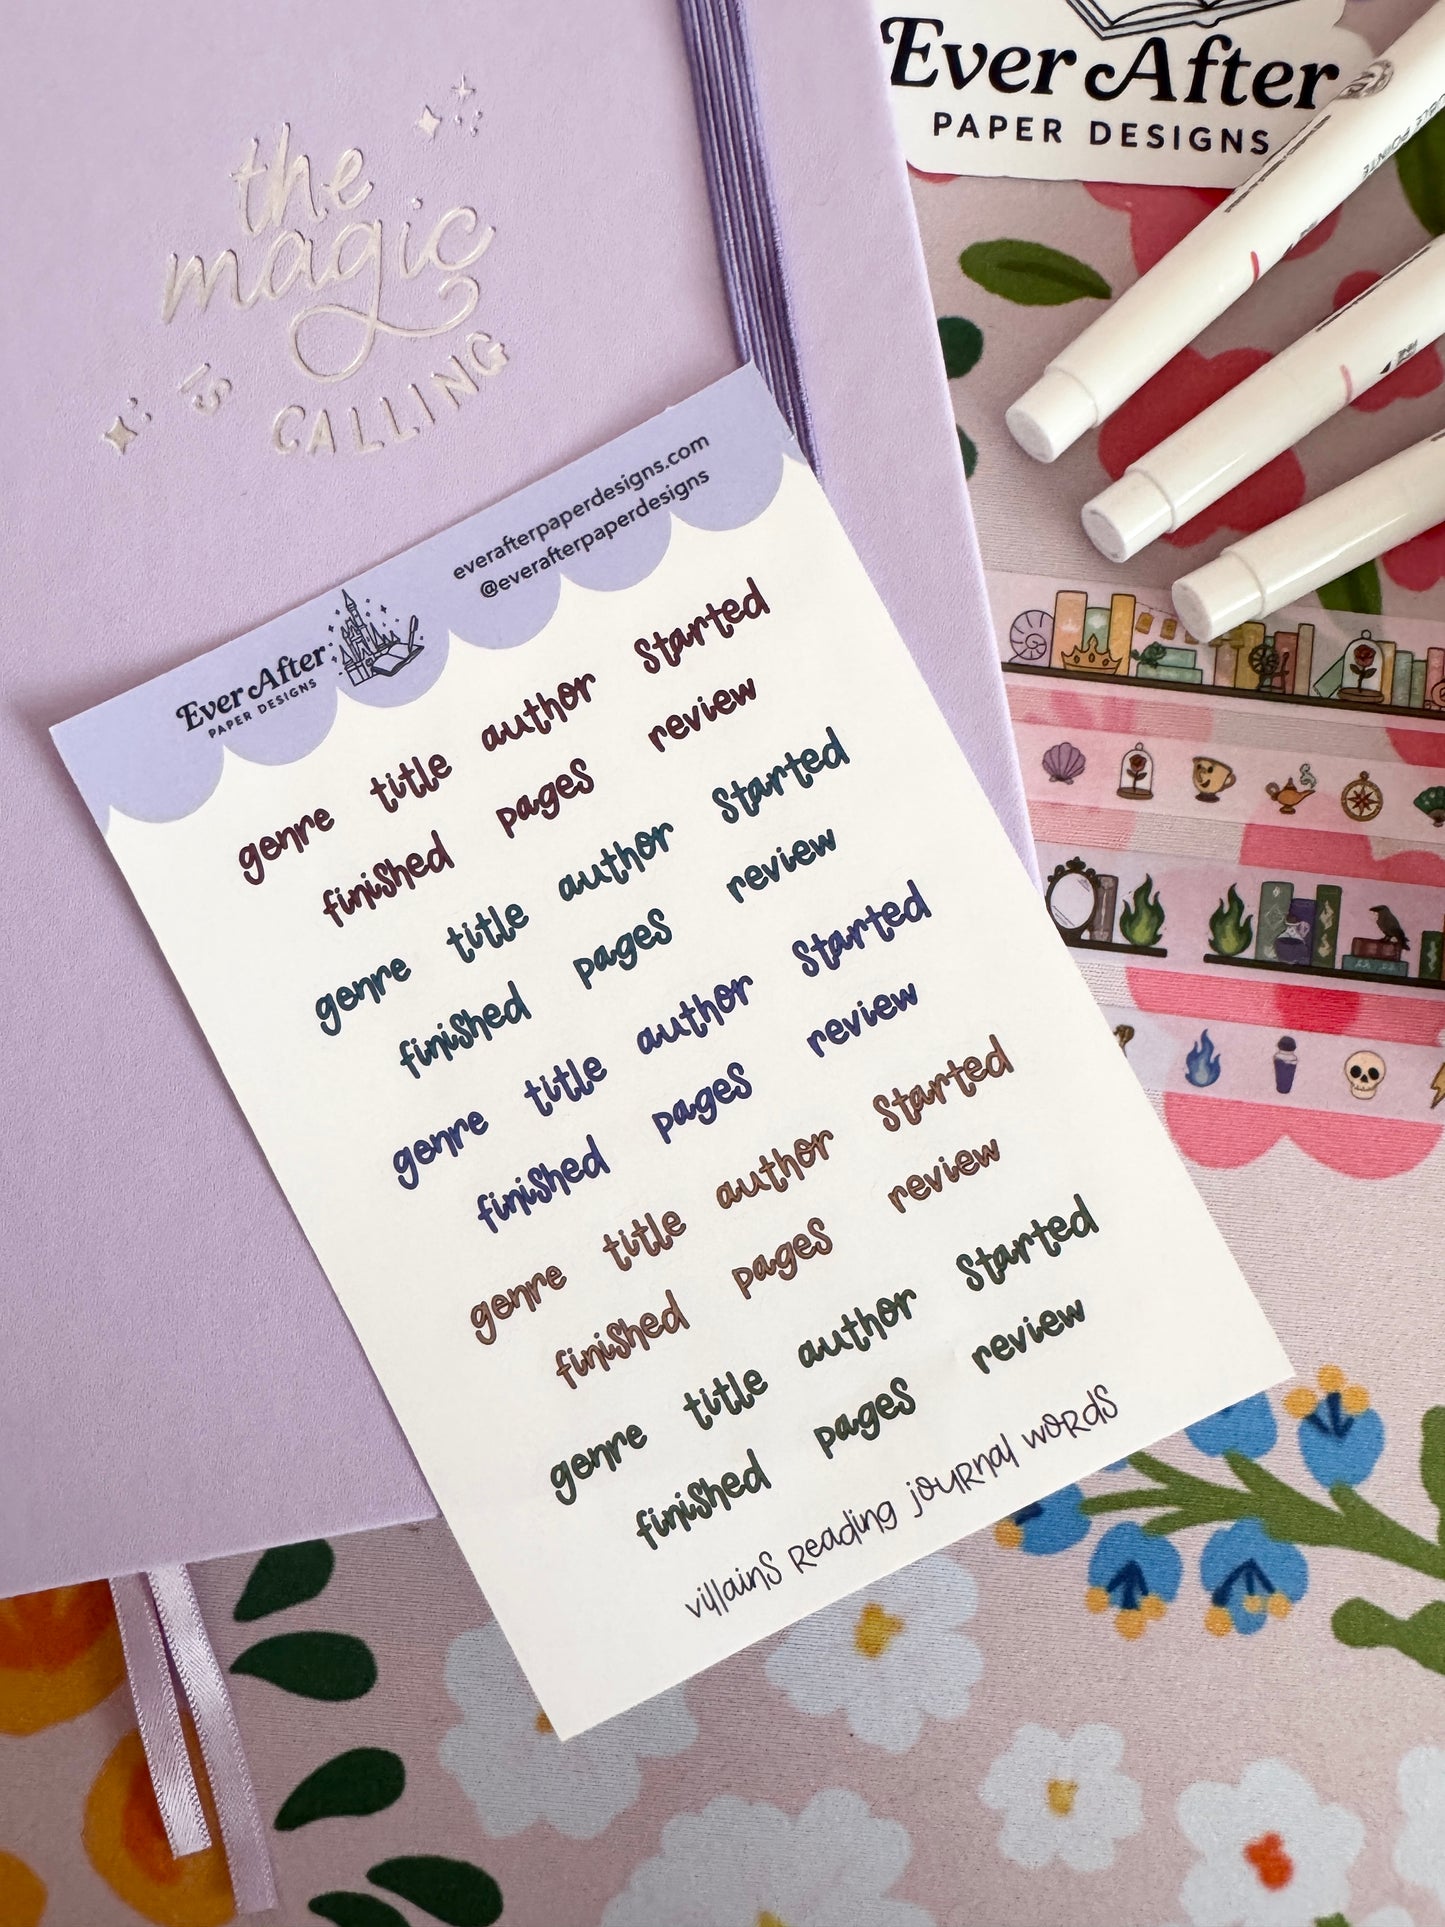 the
magic
is
CALLING
Ever After
PAPER DESIGNS
everafterpaperdesigns.com
@everafterpaperdesigns
Ever After
PAPER DESIGNS
genre title author started
finished pages review
genre title author started
finished pages review
genre title author started
finished pages review
genre title author started
finished pages review
genre title author started
finished pages review
villains reading journal words